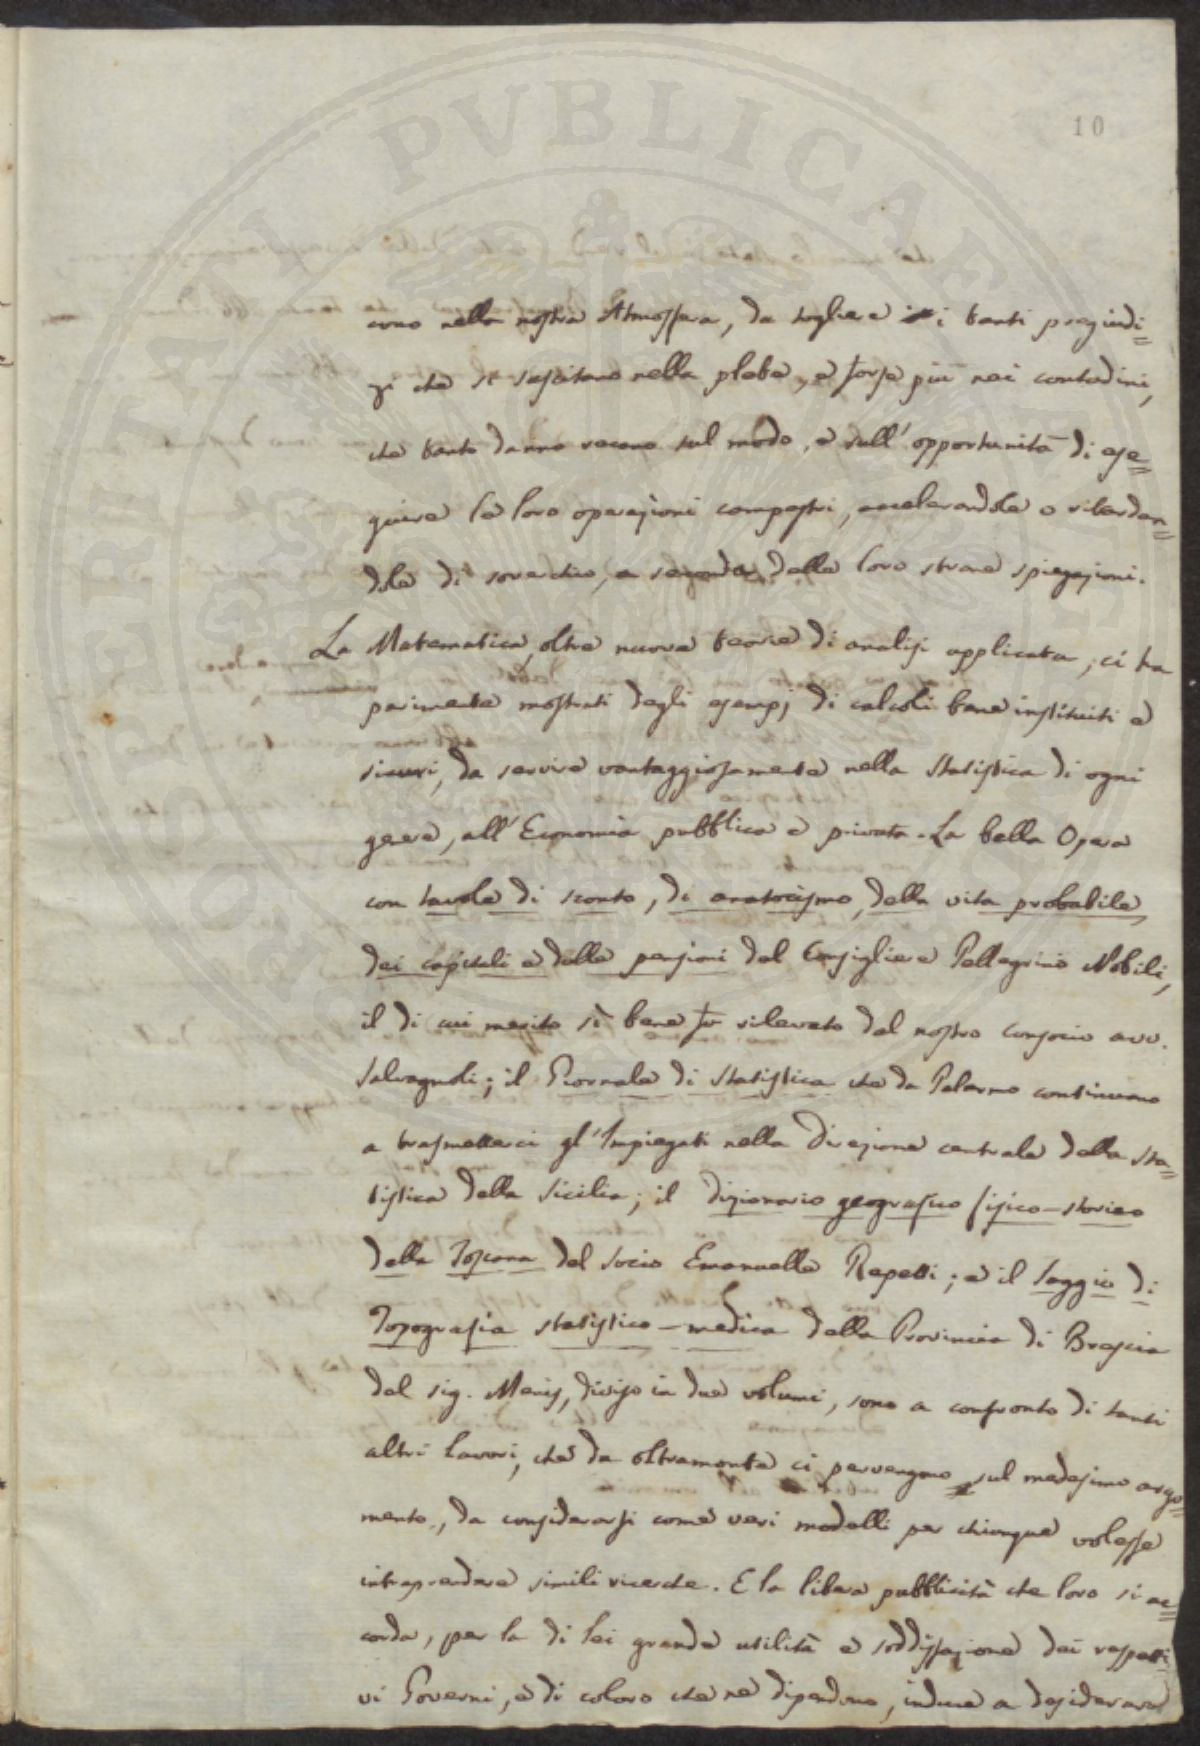 10
cono nella nostra Atmosfera, da togliere i tanti pregiudi=
zi che si suscitano nella plebe, e forse più nei contadini,
che tanto danno recano sul modo, e sull'opportunità di ese=
guire le loro operazioni campestri, accelerandole o ritardan=
dole di soverchio, a seconda delle loro strane spiegazioni.
La Matematica, oltre nuove teorie di analisi applicata, ci ha
parimente mostrati degli esempj di calcoli bene instituiti e
sicuri, da servire vantaggiosamente nella Statistica di ogni
genere, all'Economia pubblica e privata. La bella Opera
con tavole di sconto, di anatocismo, della vita probabile,
dei capitali e delle pensioni del Consigliere Pellegrino Nobili,
il di cui merito sì bene fu rilevato dal nostro Consocio avv.
Salvagnoli; il Giornale di Statistica che da Palermo continuano
a trasmetterci gl'Impiegati nella Direzione centrale della sta=
tistica della Sicilia; il dizionario geografico fisico-storico
della Toscana del Socio Emanuelle Repetti; e il Saggio di
Topografia statistico-medica della Provincia di Brescia
del sig. Menis, diviso in due volumi, sono a confronto di tanti
altri lavori, che da oltramonte ci pervengono sul medesimo argo=
mento, da considerarsi come veri modelli per chiunque volesse
intraprendere simili ricerche. E la libera pubblicità che loro si ac=
corda, per la di lei grande utilità e soddisfazione dei rispetti=
vi Governi, e di coloro che ne dipendono, induce a desiderare
PVBLICAE